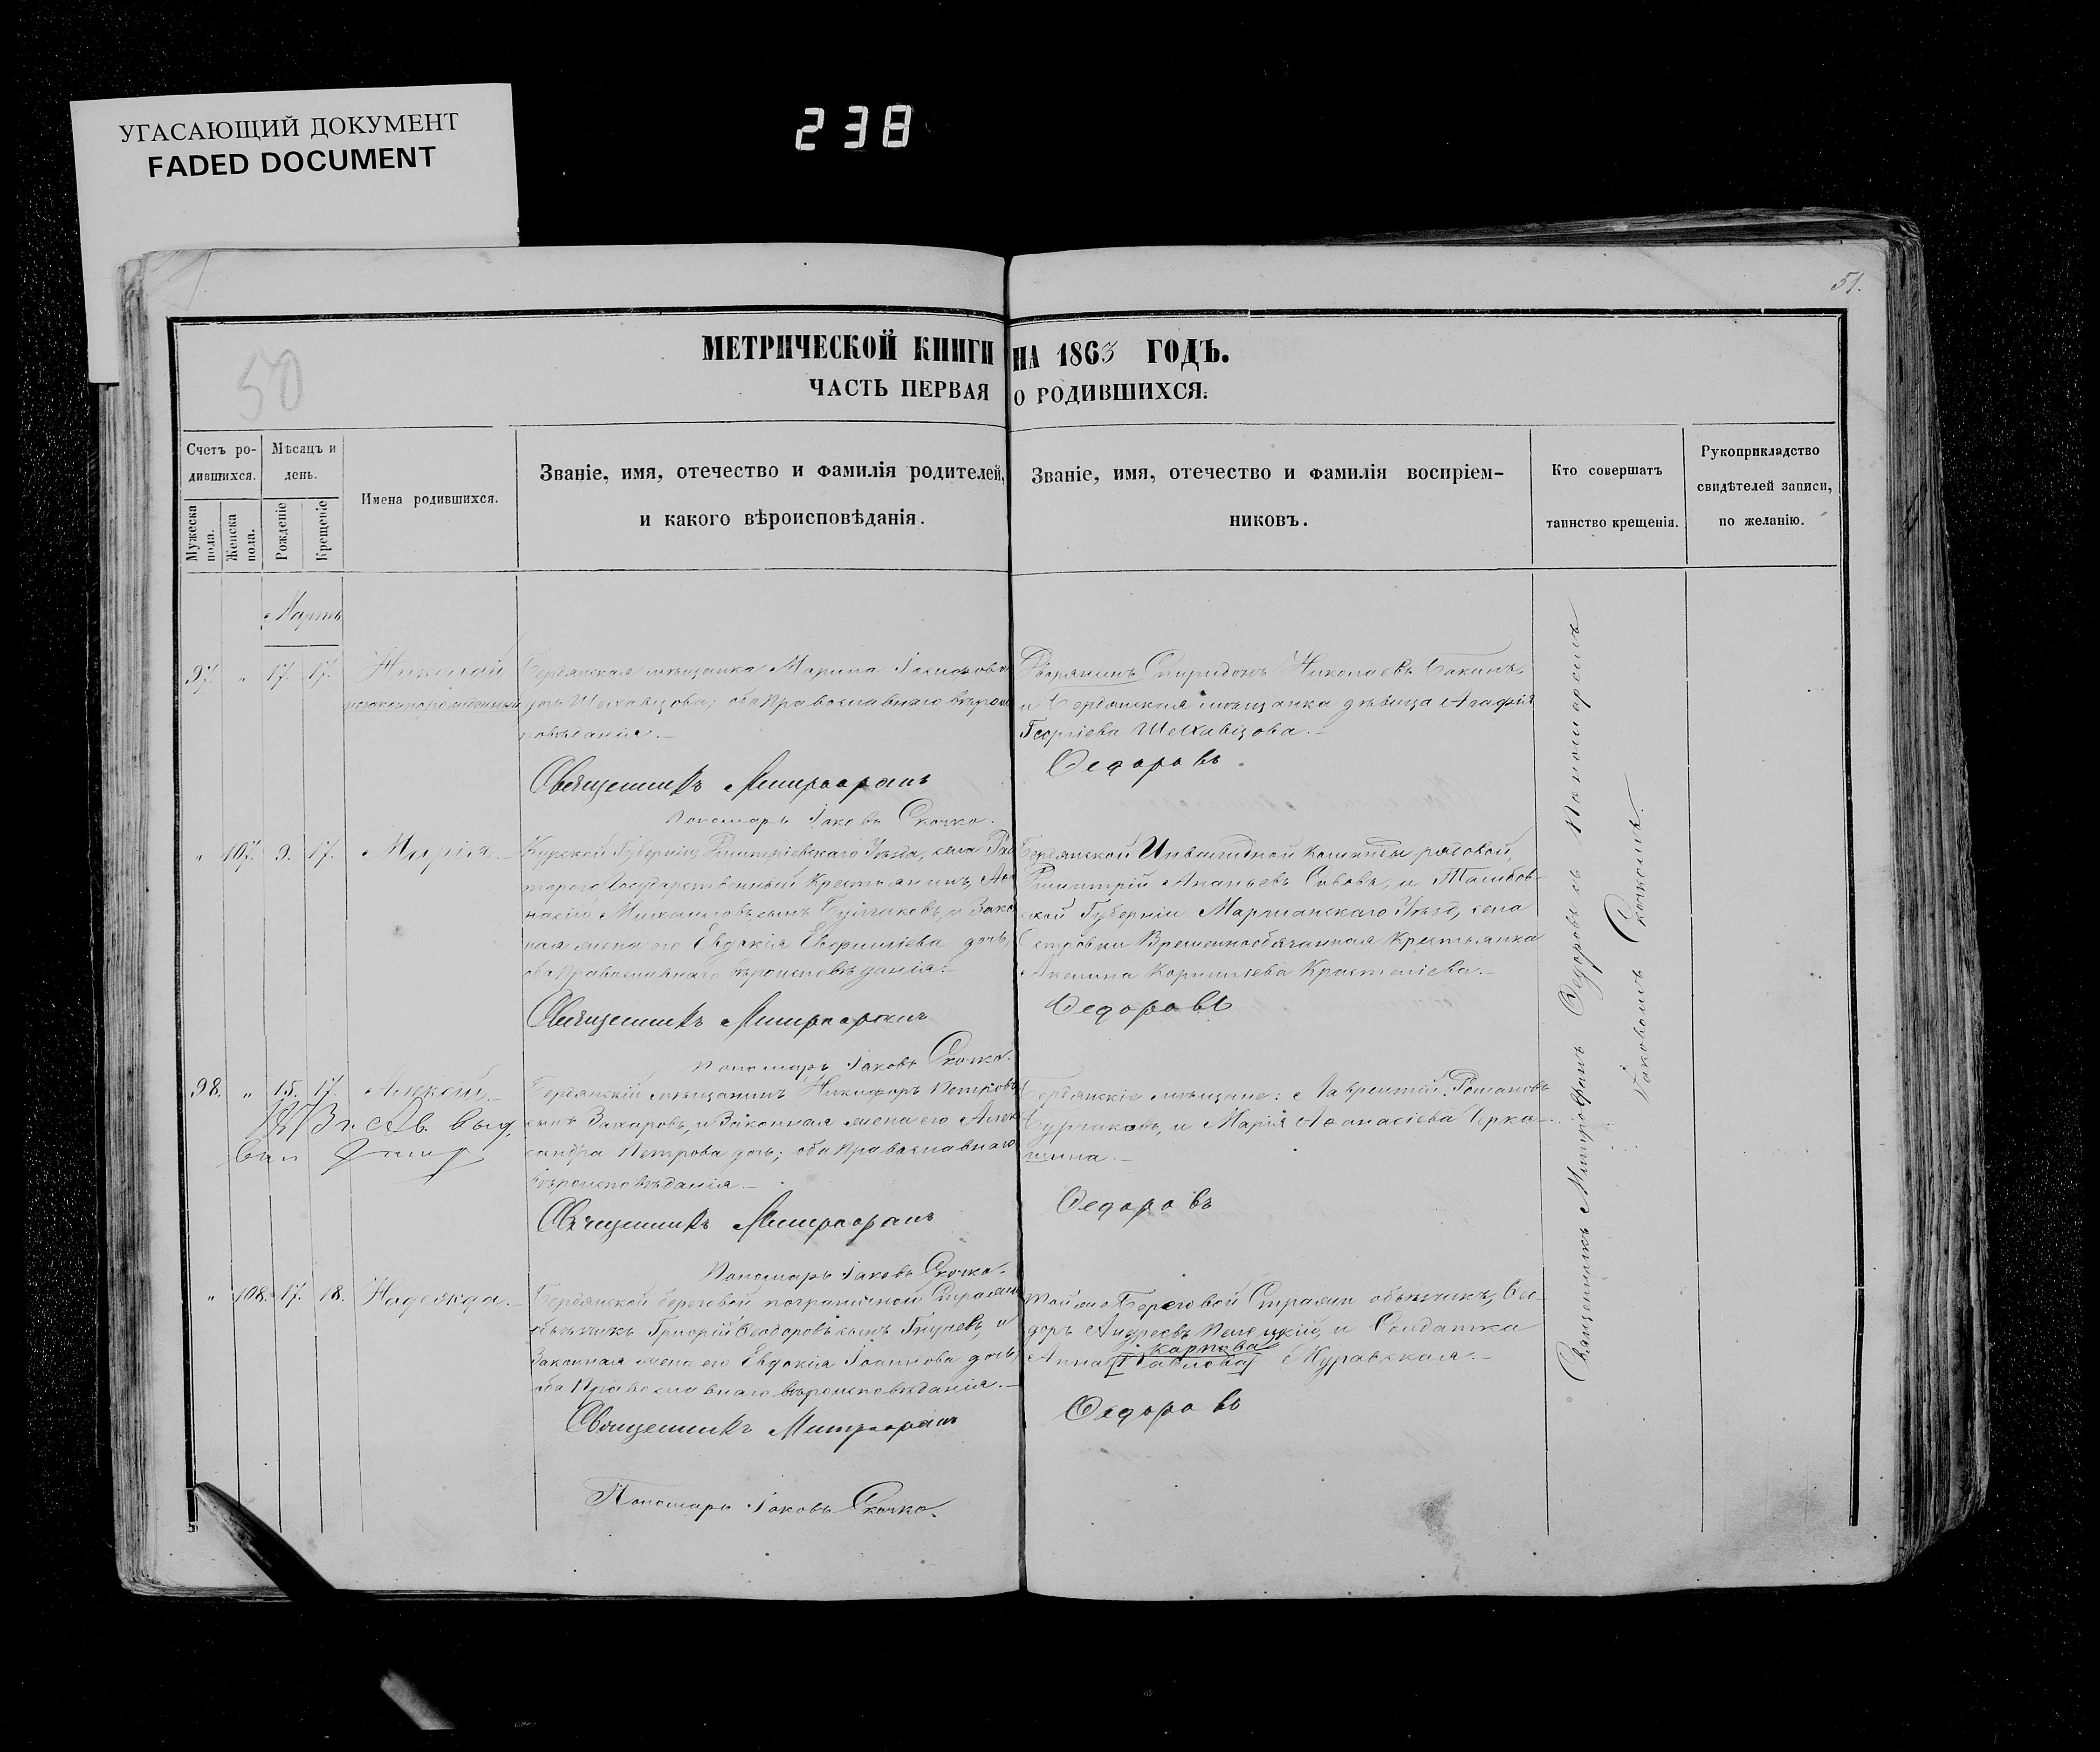 УГАСАЮЩИЙ ДОКУМЕНТ
FADED DOCUMENT
238
51.
50
МЕТРИЧЕСКОЙ КНИГИ НА 1863 ГОДЪ.
ЧАСТЬ ПЕРВАЯ О РОДИВШИХСЯ.
Счетъ ро-
дившихся.
Мужеска
пола.
Женска
пола.
Мѣсяцъ и
день.
Рожденіе
Крещеніе
Имена родившихся.
Званіе, имя, отечество и фамилія родителей,
и какого вѣроисповѣданія.
Званіе, имя, отечество и фамилія воспріем-
никовъ.
Кто совершатъ
таинство крещенія.
Рукоприкладство
свидѣтелей записи,
по желанію.
Мартъ
97. " 17. 17. Николай
незаконнорожденный
Бердянская мѣщанка Марина
дочь православнаго вѣроис
повѣданія.
Священникъ Митрофанъ
Пономарь Іаковъ Скочко.
Дворянинъ Спиридонъ Николаевъ Бакинъ,
и Бердянская мѣщанка дѣвица Агафія
Георгіева
Федоровъ.
" 107. 9. 17. Марія.
Курской Губерніи Дмитріевскаго Уѣзда, села
Государственный Крестьянинъ, Аѳа
насій сынъ и Закон
ная жена его Евдокія дочь,
оба Православнаго вѣроисповѣданія.
Священникъ Митрофанъ
Пономарь Іаковъ Скочко.
Бердянской Инвалидной команды рядовой,
Димитрій Ананьевъ и Тамбов-
ской Губерніи Уѣзда, села
Петровки Временнообязанная Крестьянка
Акилина Корнильева
Федоровъ
98. " 15. 17. Алексей.
Св. выд.
Бердянскій мѣщанинъ Никифоръ Петровъ
сынъ Захаровъ, и Законная жена его Алек
сандра Петрова дочь; оба Православнаго
вѣроисповѣданія.
Священникъ Митрофанъ
Пономарь Іаковъ Скочко.
Бердянскіе мѣщане: Лаврентій Романовъ
и Марія Аѳанасіева Черка-
шина.
Федоровъ
" 108. 17. 18. Надежда.
Бердянской береговой пограничной Стражи
объѣзчикъ Григорій Ѳеодоровъ сынъ и
Законная жена его Евдокія Іоаннова дочь,
оба Православнаго вѣроисповѣданія.
Священникъ Митрофанъ
Пономарь Іаковъ Скочко.
Той же Береговой Стражи объѣзчикъ, Ѳео-
доръ Андреевъ и Солдатка
Карпова
Анна Павлова Журавская.
Федоровъ
Священникъ Митрофанъ Федоровъ съ Пономаремъ
Іаковомъ Скочкомъ.